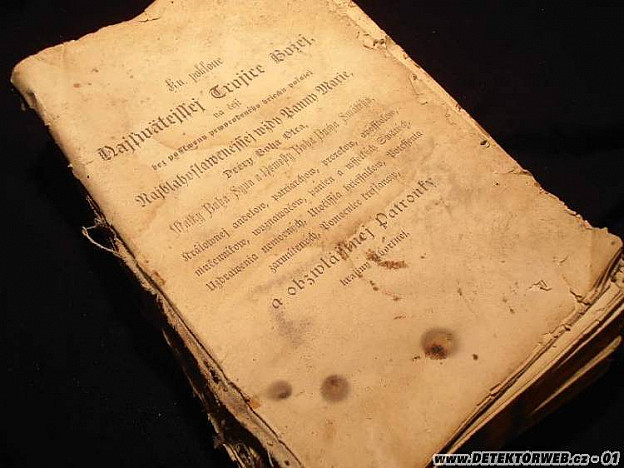 Ku poklone
Najswätejssej Trojice Božej,
na česť
bez poskwrny prworodneho hriechu počatej
Najblahoslawenejssej wždy Panny Marie,
Dcery Boha Otca,
Matky Boha Syna a Newesty Boha Ducha Swatého,
Kráľownej angelow, patriarchow, prorokow, apoštolow,
mučenníkow, wyznawačow, panien a wssetkych Swätych,
Uzdrawenia nemocnych, Utočišťa hriešnikow, Potessenia
zarmútených, Pomocnice kresťanow,
a obzwlásstnej Patronky
krajiny Uhorskej.
www.DETEKTORWEB.cz - 01